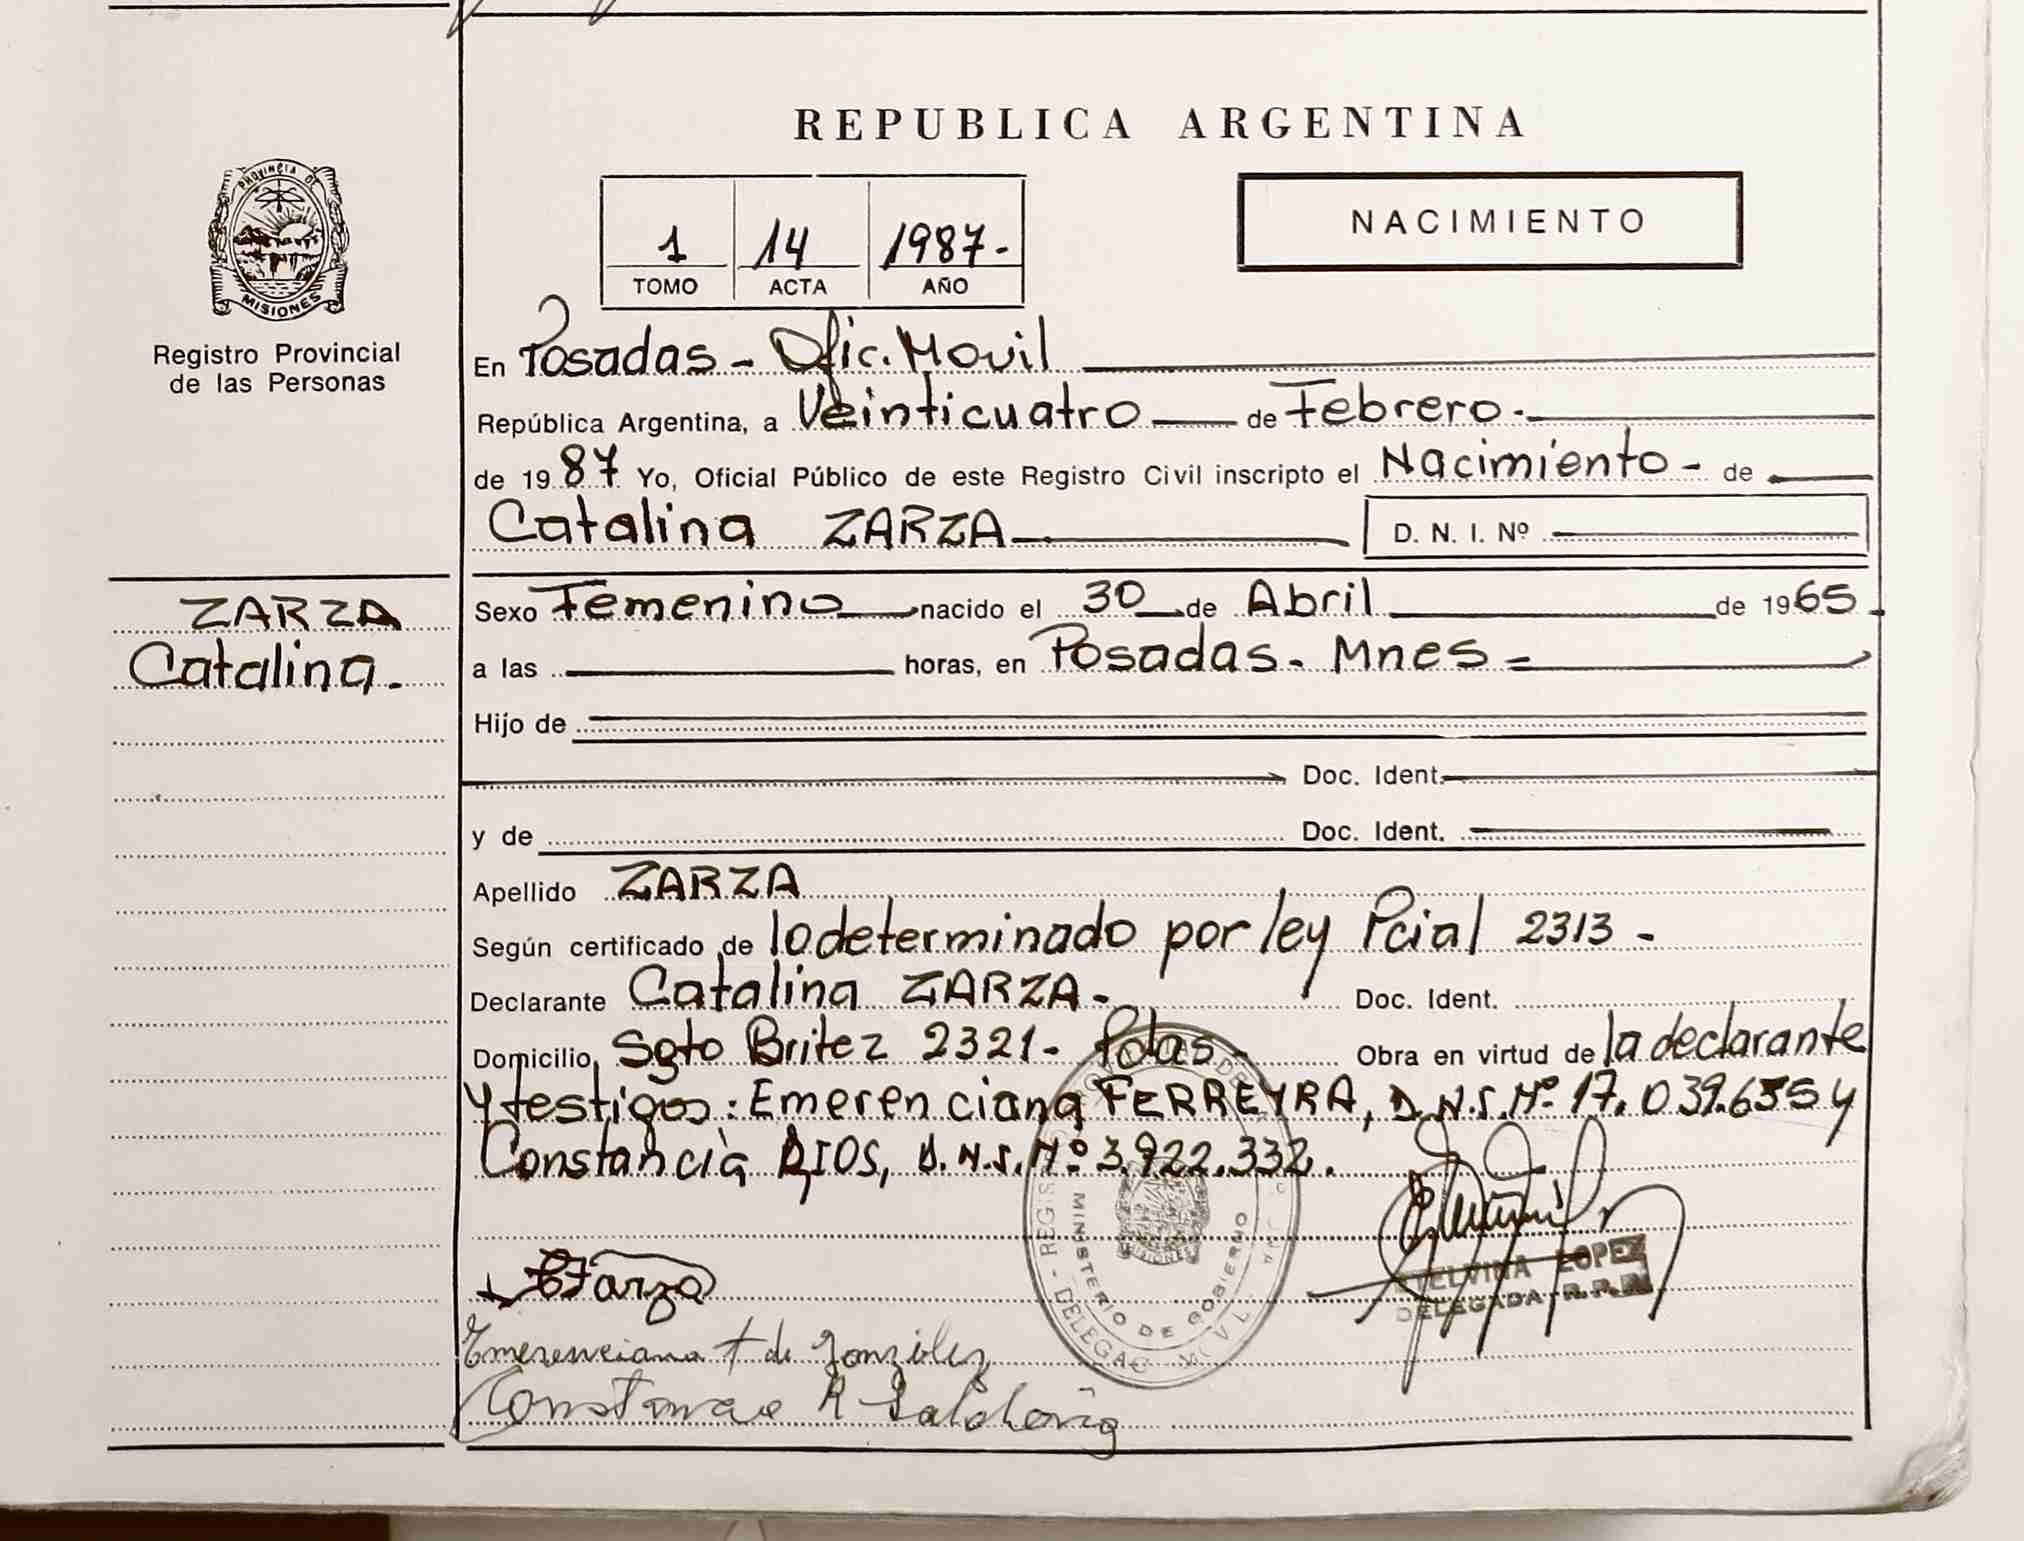 REPUBLICA ARGENTINA
PROVINCIA DE
MISIONES
Registro Provincial
de las Personas
1 14 1987.-
TOMO ACTA AÑO
NACIMIENTO
En Posadas - Ofic. Movil
República Argentina, a Veinticuatro de Febrero.-
de 1987 Yo, Oficial Público de este Registro Civil inscripto el Nacimiento - de
Catalina ZARZA D. N. I. Nº
ZARZA
Catalina.
Sexo Femenino nacido el 30 de Abril de 1965
a las horas, en Posadas. Mnes =
Hijo de
Doc. Ident.
y de Doc. Ident.
Apellido ZARZA
Según certificado de lo determinado por ley Pcial 2313 -
Declarante Catalina ZARZA. Doc. Ident.
Domicilio Sgto Britez 2321 - Pdas - Obra en virtud de la declarante
y testigos: Emerenciana FERREYRA, D.N.I. Nº 17.039.635 y
Constancia RIOS, D.N.I. Nº 3.922.332.
MINISTERIO DE GOBIERNO
MISIONES
Zarza
ETELVINA LOPEZ
DELEGADA R.P.P.
Emerenciana F de González
Constancia R